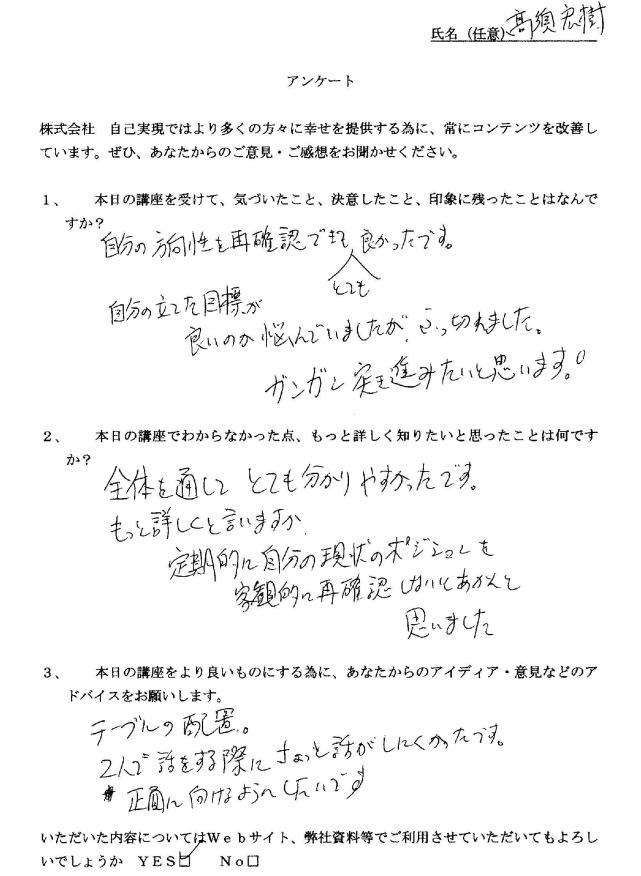 氏名（任意）髙須宏樹
アンケート
株式会社　自己実現ではより多くの方々に幸せを提供する為に、常にコンテンツを改善し
ています。ぜひ、あなたからのご意見・ご感想をお聞かせください。
１、　本日の講座を受けて、気づいたこと、決意したこと、印象に残ったことはなんで
すか？
自分の方向性を再確認できて 良かったです。
とても
自分の立てた目標が
良いのか悩んでいましたが、ふっ切れました。
ガンガン 突き進みたいと思います。
２、　本日の講座でわからなかった点、もっと詳しく知りたいと思ったことは何です
か？
全体を通して とても分かりやすかったです。
もっと詳しくと言いますか、
定期的に自分の現状のポジションを
客観的に再確認しないとあかんと
思いました
３、　本日の講座をより良いものにする為に、あなたからのアイディア・意見などのア
ドバイスをお願いします。
テーブルの配置。
2人で話をする際にちょっと話がしにくかったです。
正面に向けるようにしたいです
いただいた内容についてはＷｅｂサイト、弊社資料等でご利用させていただいてもよろし
いでしょうか　ＹＥＳ☑　Ｎｏ□